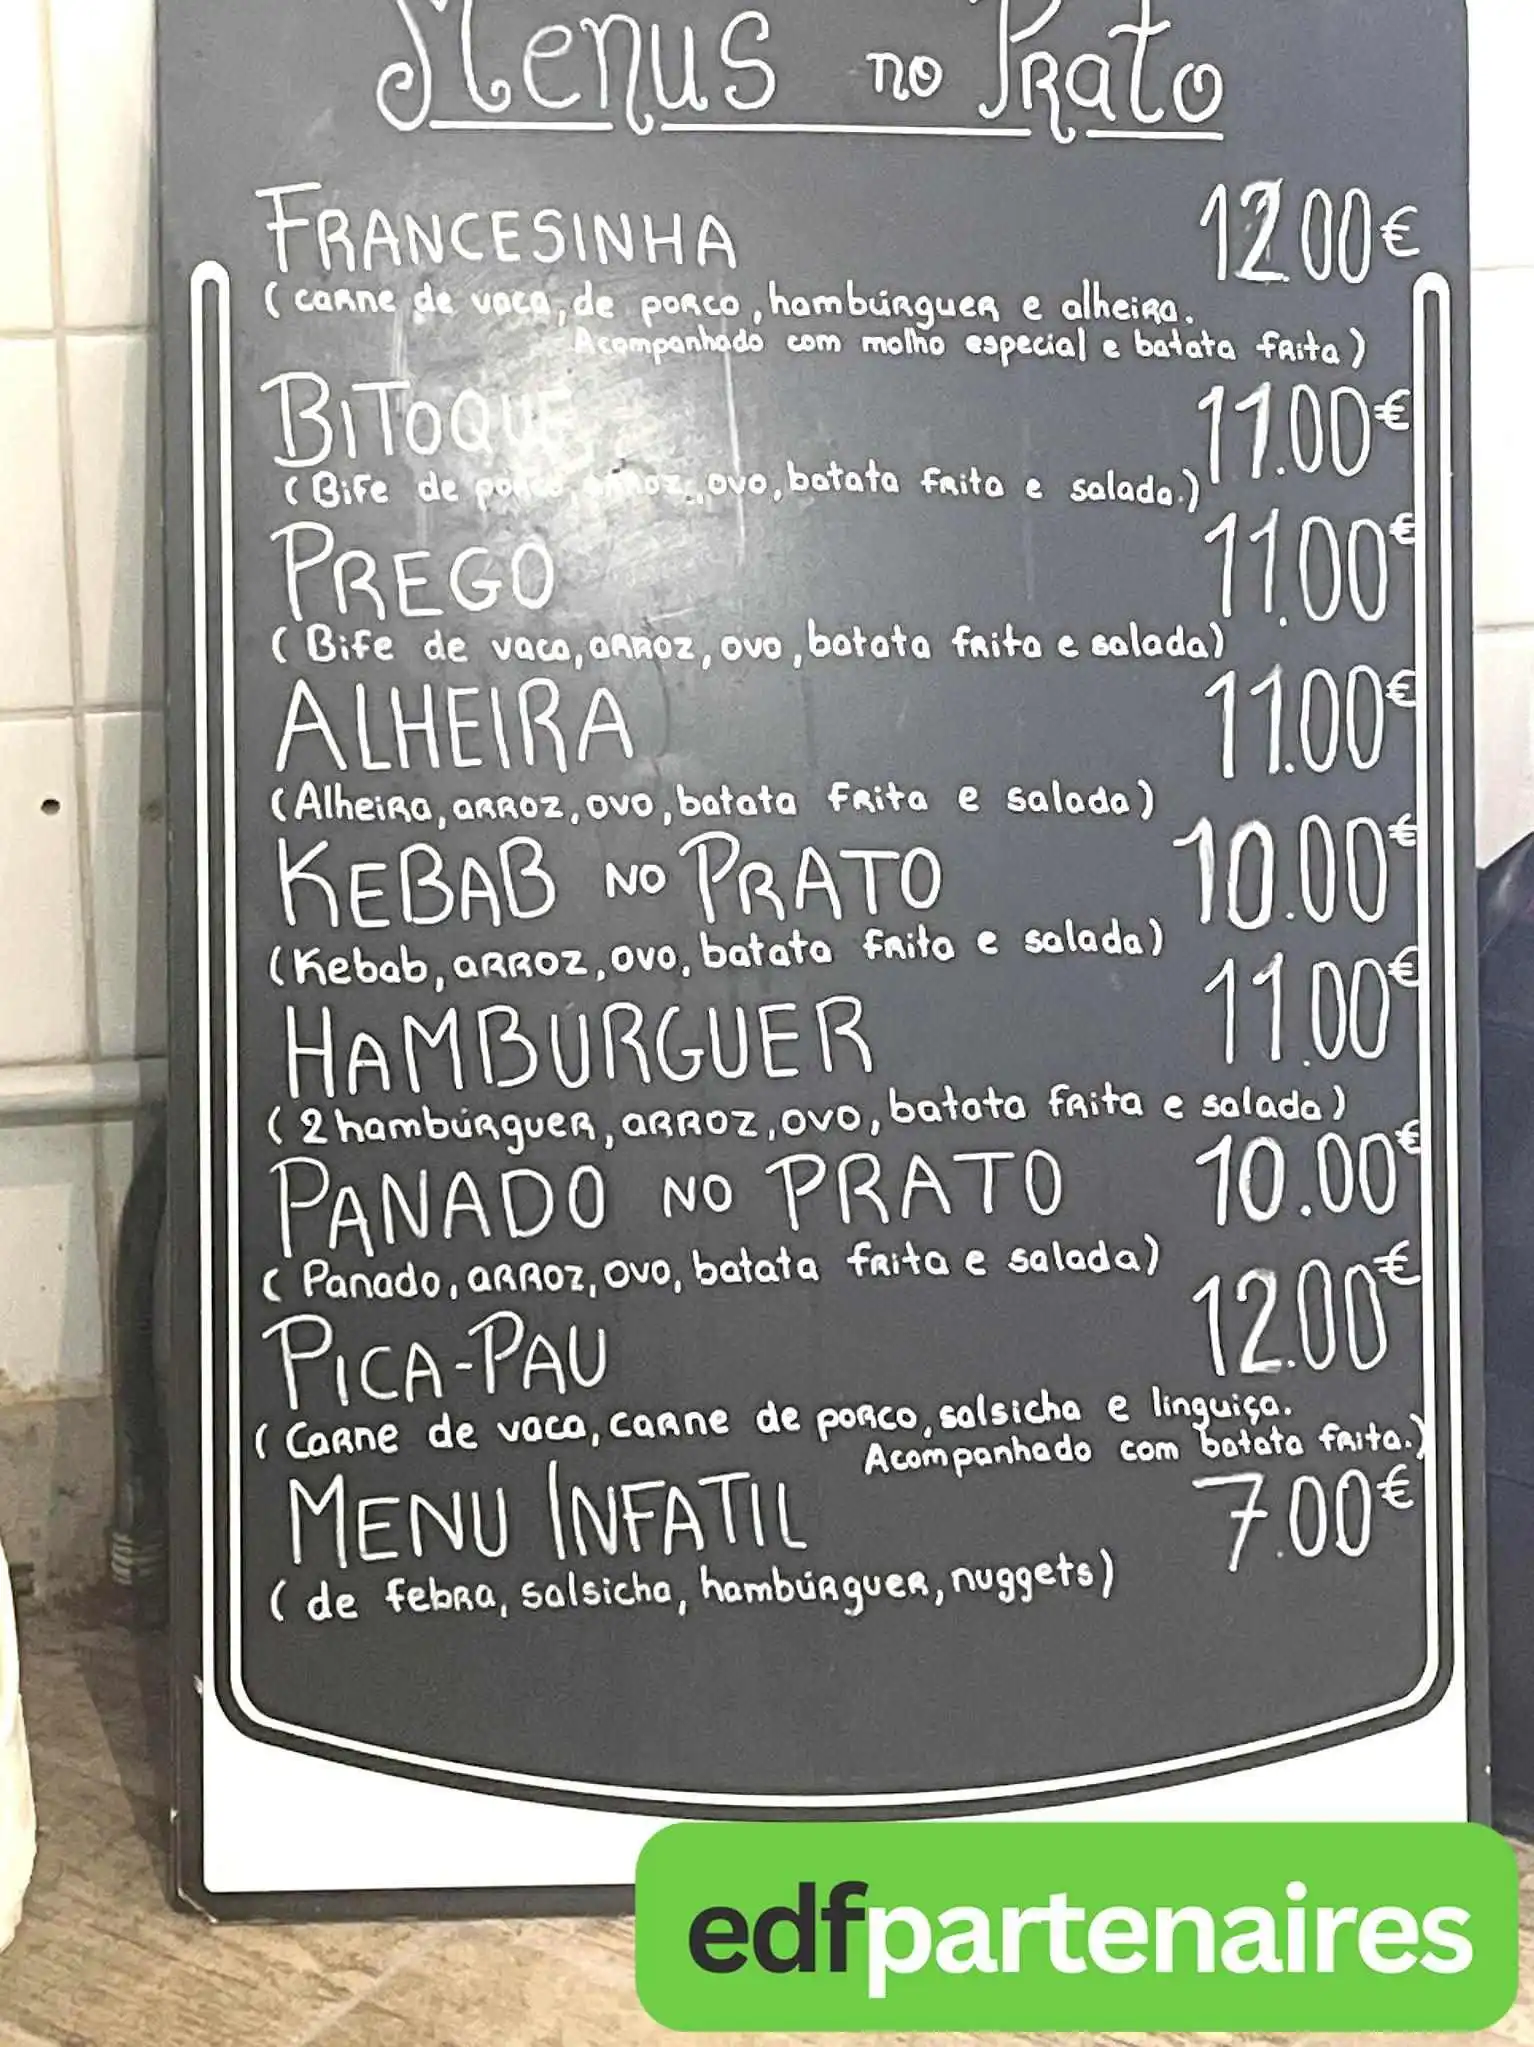 Menus no Prato
FRANCESINHA 12.00€
(carne de vaca, de porco, hambúrguer e alheira.
Acompanhado com molho especial e batata frita)
BITOQUE 11.00€
(Bife de porco, arroz, ovo, batata frita e salada.)
PREGO 11.00€
(Bife de vaca, arroz, ovo, batata frita e salada)
ALHEIRA 11.00€
(Alheira, arroz, ovo, batata frita e salada)
KEBAB NO PRATO 10.00€
(Kebab, arroz, ovo, batata frita e salada)
HAMBURGUER 11.00€
(2 hambúrguer, arroz, ovo, batata frita e salada)
PANADO NO PRATO 10.00€
(Panado, arroz, ovo, batata frita e salada)
PICA-PAU 12.00€
(Carne de vaca, carne de porco, salsicha e linguiça.
Acompanhado com batata frita.)
MENU INFATIL 7.00€
(de febra, salsicha, hambúrguer, nuggets)
edfpartenaires